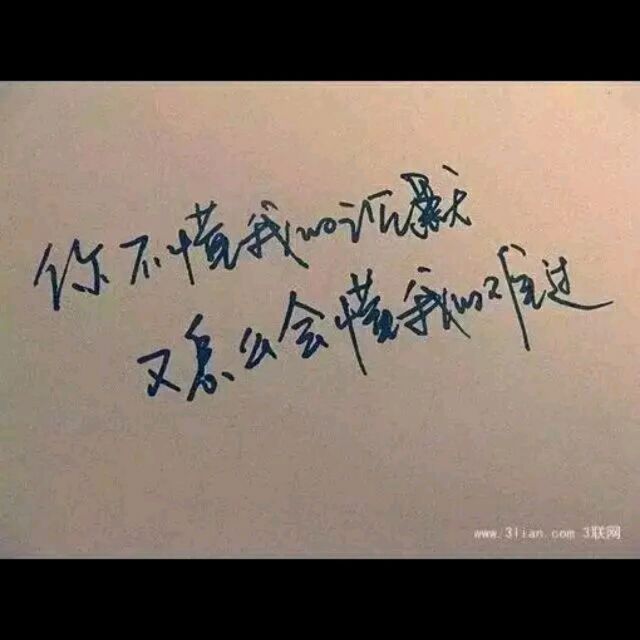 你不懂我的沉默
又怎么会懂我的难过
www.3lian.com 3联网